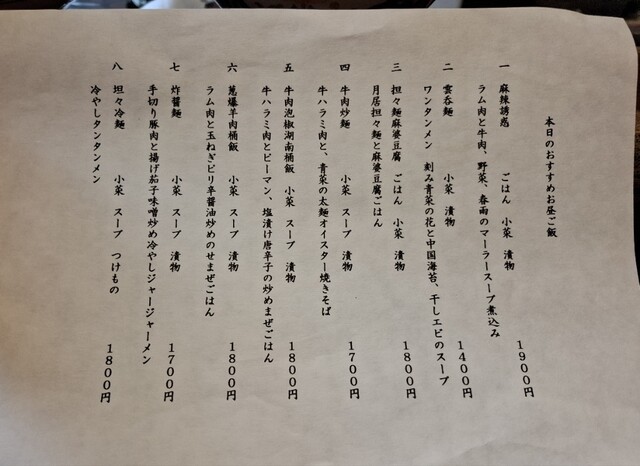 本日のおすすめお昼ご飯
一 麻辣誘惑 ごはん 小菜 漬物 1900円
ラム肉と牛肉、野菜、春雨のマーラースープ煮込み
二 雲呑麺 小菜 漬物 1400円
ワンタンメン 刻み青菜の花と中国海苔、干しエビのスープ
三 担々麺麻婆豆腐 ごはん 小菜 漬物 1800円
月居担々麺と麻婆豆腐ごはん
四 牛肉炒麺 小菜 スープ 漬物 1700円
牛ハラミ肉と、青菜の太麺オイスター焼きそば
五 牛肉泡椒湖南桶飯 小菜 スープ 漬物 1800円
牛ハラミ肉とピーマン、塩漬け唐辛子の炒めまぜごはん
六 葱爆羊肉桶飯 小菜 スープ 漬物 1800円
ラム肉と玉ねぎピリ辛醤油炒めのせまぜごはん
七 炸醤麺 小菜 スープ 漬物 1700円
手切り豚肉と揚げ茄子味噌炒め冷やしジャージャーメン
八 坦々冷麺 小菜 スープ つけもの 1800円
冷やしタンタンメン